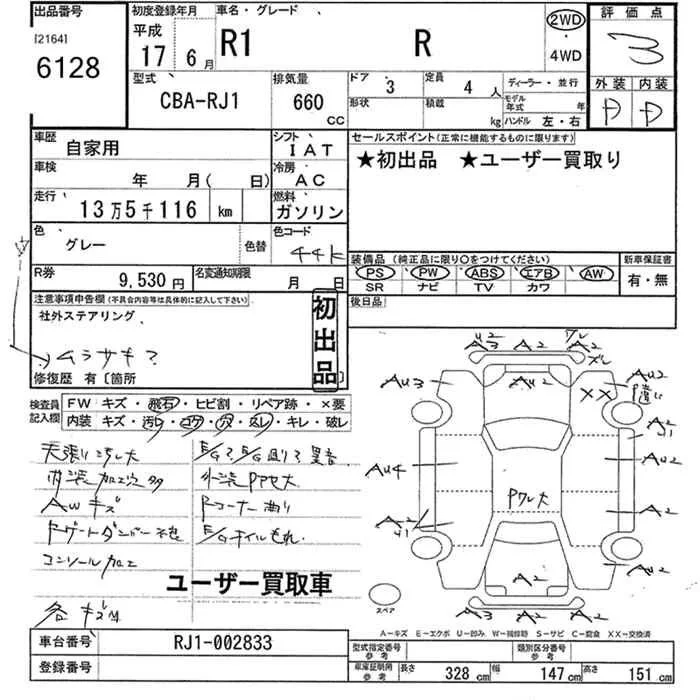 出品番号 初度登録年月 車名・グレード 評価点
[2164] 平成 2WD 3
6128 17 6月 R1 R ・ 4WD
型式 排気量 ドア 3 定員 4人 ディーラー・並行 外装 内装
CBA-RJ1 660 CC 形状 積載 kg モデル年式 年 D D
ハンドル 左・右
車歴 自家用 シフト IAT セールスポイント(正常に機能するものに限ります)
車検 年 月( 日) 冷房 AC ★初出品 ★ユーザー買取り
走行 13万5千116 km 燃料 ガソリン
色 グレー 色替 色コード 44K
装備品(純正品に限り○をつけてください) 新車保証書
R券 9,530円 名変通知期限 月 日 PS PW ABS エアB AW 有・無
SR ナビ TV カワ
注意事項申告欄(不具合内容等は具体的に記入して下さい) 初出品 後日品
社外ステアリング
ムラサキ?
修復歴 有〔箇所 〕
検査員記入欄 FW キズ・飛石・ヒビ割・リペア跡・×要
内装 キズ・汚れ・コゲ・穴・スレ・キレ・破レ
天張り汚レ大
内装加工穴多 外装Pアセ大
AWキズ Fコーナー曲り
E/Gオイルもれ
コンソール加工
ユーザー買取車
各キズ凹
U2 A3 A2 A2
AU3 A2 XX AU2
AU4 AU2
A2
Pワレ大
A2 AU2
A3 A2 A2
スペア
A-キズ E-エクボ U-凹み W-補修跡 S-サビ C-腐食 XX-交換済
車台番号 RJ1-002833 型式指定番号 参考 類別区分番号 参考
登録番号 車庫証明用 参考 長さ 328cm 幅 147cm 高さ 151cm